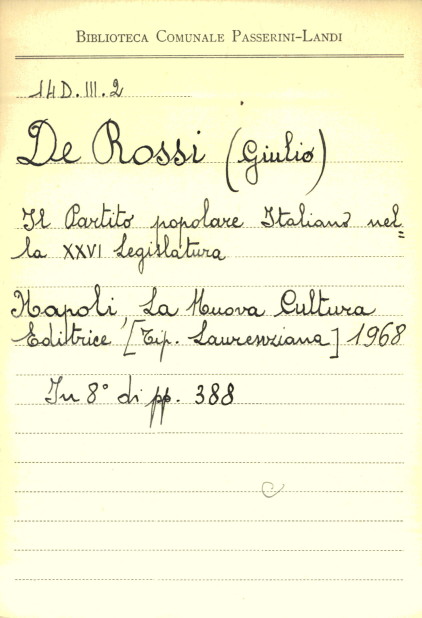 BIBLIOTECA COMUNALE PASSERINI-LANDI
14 D. III. 2
De Rossi (Giulio)
Il Partito popolare Italiano nel=
la XXVI Legislatura
Napoli, La Nuova Cultura
Editrice [Tip. Laurenziana] 1968
In 8° di pp. 388